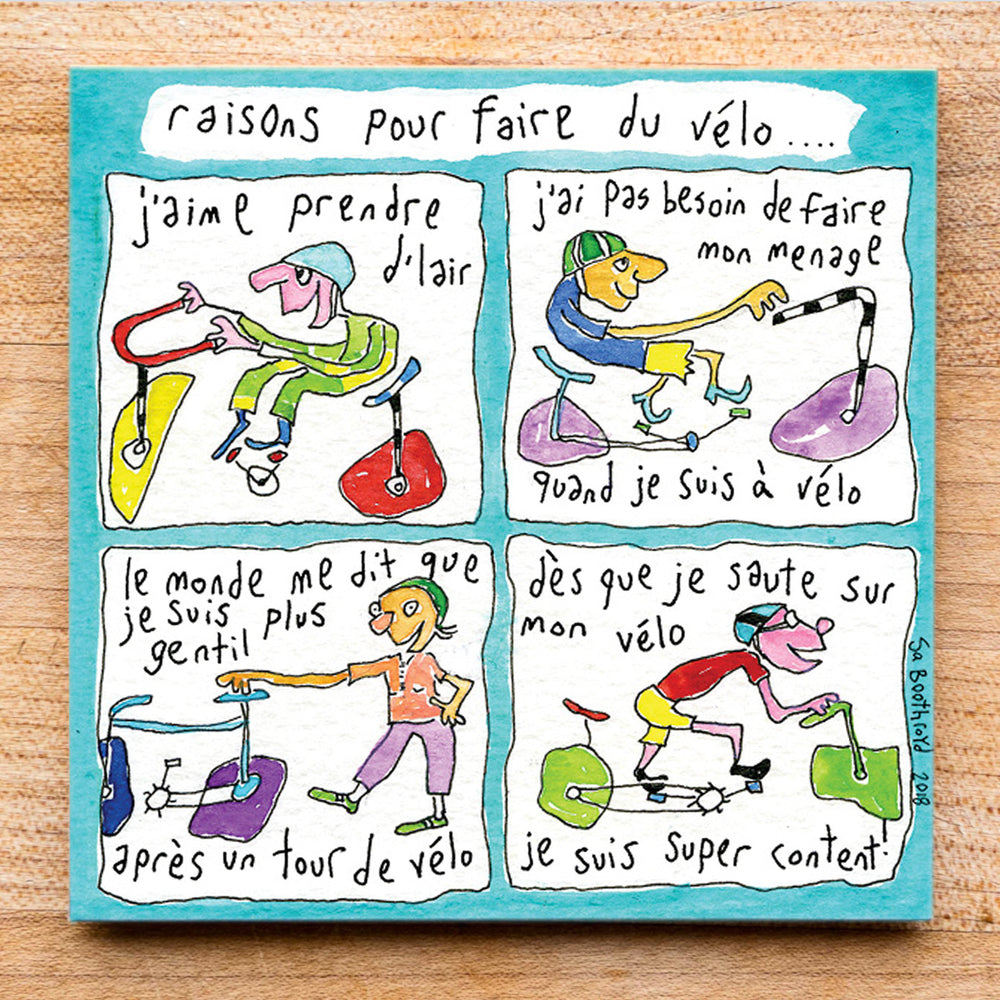 raisons pour faire du vélo....
j'aime prendre
d'lair
j'ai pas besoin de faire
mon menage
quand je suis à vélo
le monde me dit que
je suis plus
gentil
après un tour de vélo
dès que je saute sur
mon vélo
je suis super content!
Sa Boothroyd 2018